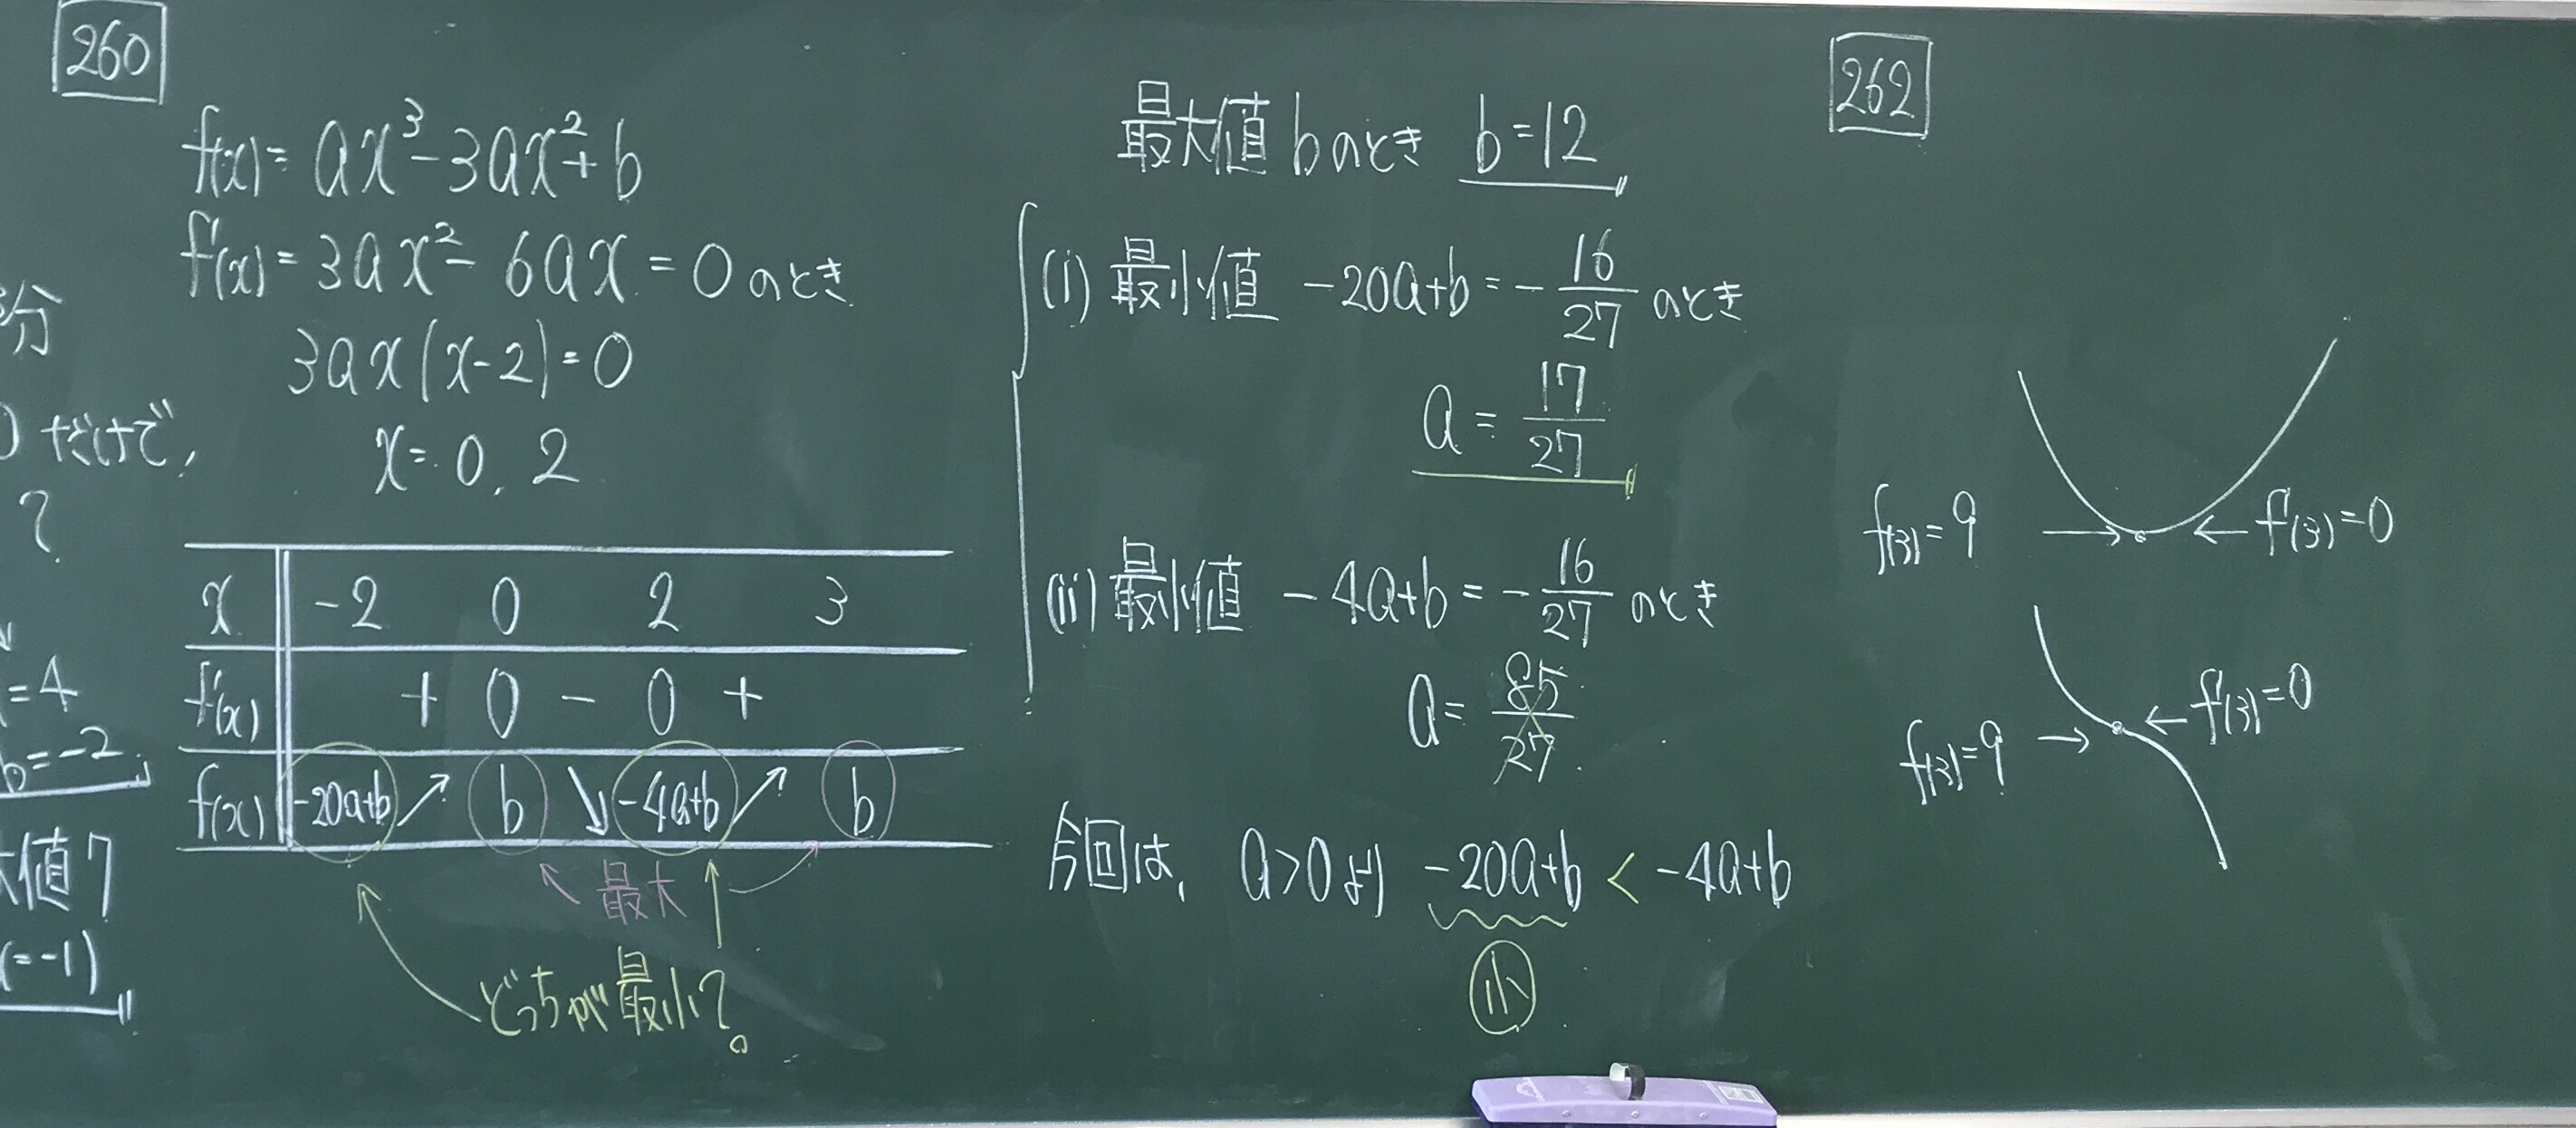 分
だけで,
?
=4
b=-2
値7
(=-1)
260
f(x)= ax³-3ax²+b
f'(x)=3ax²-6ax=0のとき
3ax(x-2)=0
x=0, 2
x -2 0 2 3
f'(x) + 0 - 0 +
f(x) -20a+b ↗ b ↘ -4a+b ↗ b
最大
どっちが最小?
最大値 b のとき b=12
(i) 最小値 -20a+b=-16/27 のとき
a=17/27
(ii) 最小値 -4a+b=-16/27 のとき
a=85/27
今回は, a>0より -20a+b < -4a+b
小
262
f(3)=9 → ← f'(3)=0
f(3)=9 → ← f'(3)=0